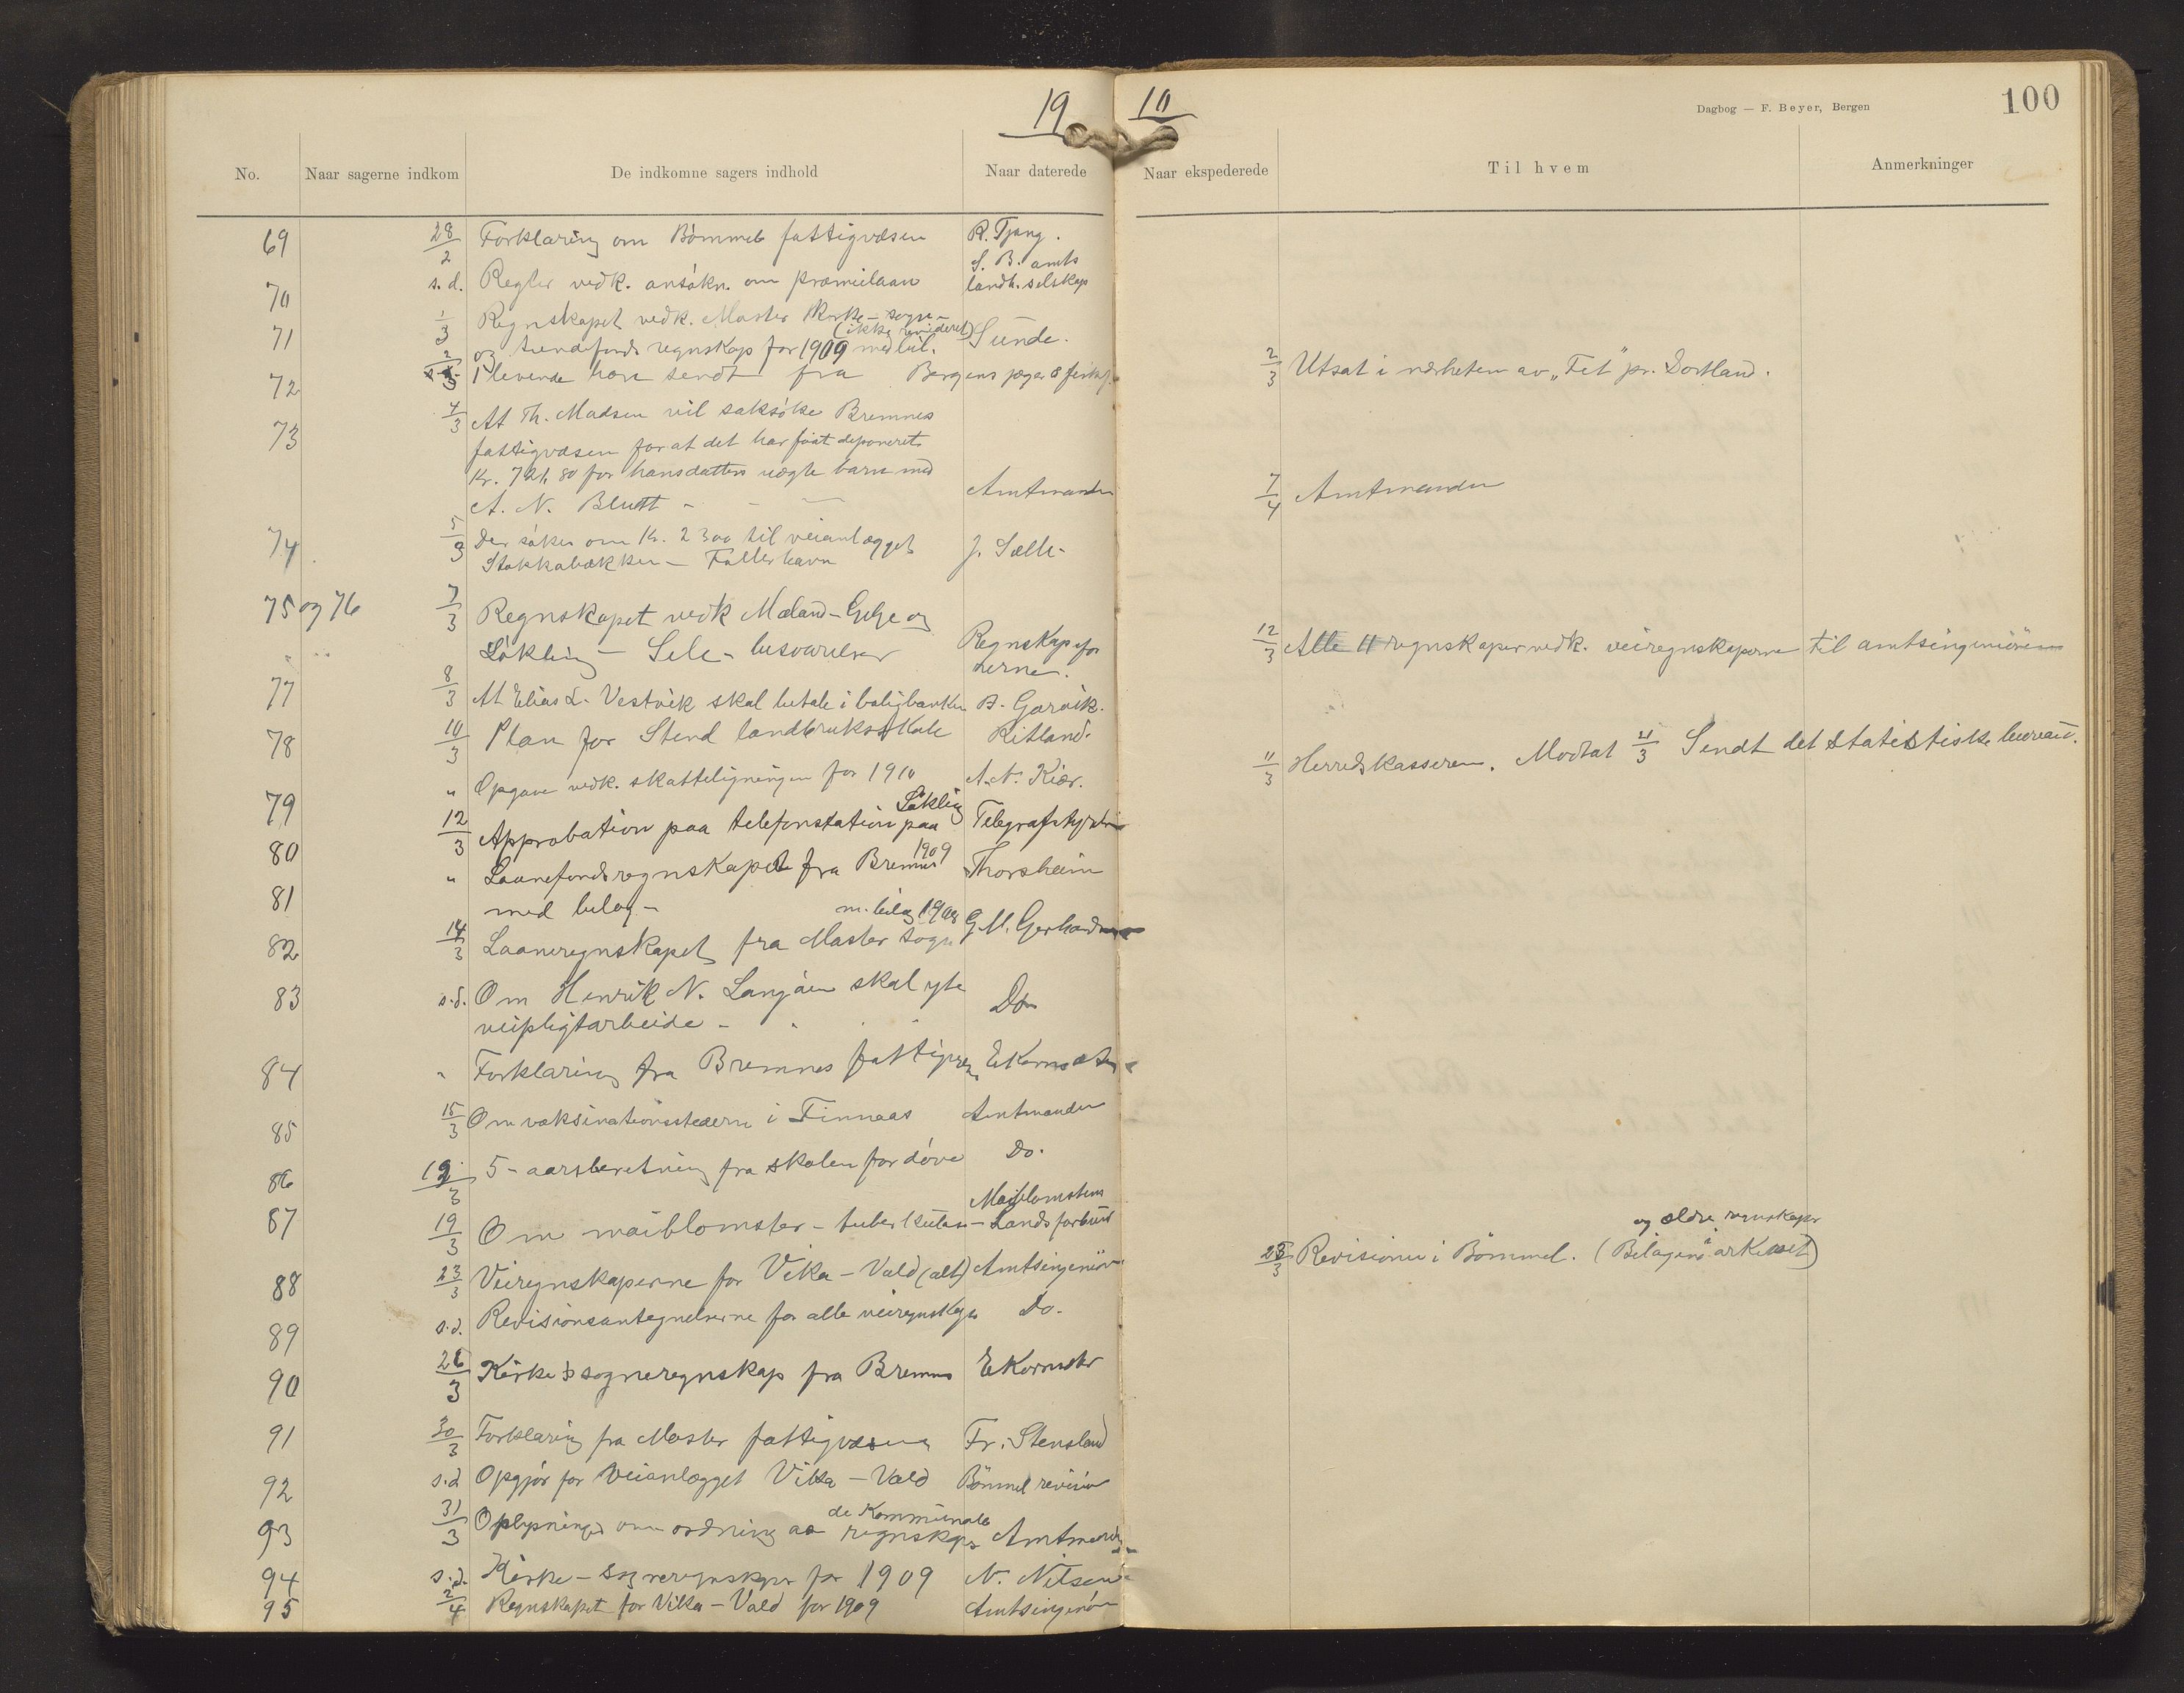 19 10
Dagbog — F. Beyer, Bergen
100
No. Naar sagerne indkom De indkomne sagers indhold Naar daterede Naar ekspederede Til hvem Anmerkninger
69 28/2 Forklaring om Bömmel fattigvæsen R. Tjong.
70 s.d. Regler vedk. ansökn. om præmielaan S. B. amts
landh. selskap
71 1/3 Regnskapet vedk. Moster Kirke- sogne-
(ikke revideret)
og tiendefonds regnskap for 1909 med bil. Sunde.
72 2/3 1 levende hare sendt fra Bergens jæger & 2/3 Utsat i nærheten av "Fet" pr. Dortland.
73 4/3 At Th. Madsen vil saksöke Bremnes
fattigvæsen for at det har faat deponeret
Kr. 721,80 for hans datters uægte barn med
A. N. Blutt - - - Amtmanden 7/4 Amtmanden
74 5/3 Der söker om Kr. 2300 til veianlægget
Stokkabækken - Fallerhavn J. Sælle-
75 og 76 7/3 Regnskapet vedk Mæland- og
Lökling - Sele- besvarelser Regnskapsförerne. 12/3 Alle 11 regnskaper vedk. veiregnskaperne til amtsingeniören
77 8/3 At Elias L. Vestvik skal betale i boligbanken B. Garvik.
78 10/3 Plan for Stend landbruksskole Ritland.
79 " Opgave vedk. skatteligningen for 1910 A. N. Kiær. 11/3 Herredskasseren. Modtat 21/3 Sendt det statistiske bureau.
80 12/3 Approbation paa telefonstation paa Lökling Telegrafstyrelsen
81 " Laanefondsregnskapet fra Bremnes 1909 Thorsheim
med bilag -
82 14/3 Laaneregnskapet fra Moster sogn m. bilag 1908 G. M. Gerhardsen
83 s.d. Om Henrik N. Langåen skal yte
veipligtarbeide - Do
84 " Forklaring fra Bremnes fattigv.
85 15/3 Om vaksinationsstederne i Finnaas Amtmanden
86 19/3 5-aarsberetning fra skolen for döve Do.
87 19/3 Om maiblomster - tuberkulose- Maiblomstens
Landsforbund
88 23/3 Veiregnskaperne for Vika - Vald (alt) Amtsingeniör 23/3 Revisionen i Bömmel. (Bilagene i arkivet)
og ældre regnskaper
89 s.d. Revisionsantegnelserne for alle veiregnskaper Do.
90 26/3 Kirke & sogneregnskap fra Bremnes
91 30/3 Forklaring fra Moster fattigvæsen Fr. Stensland
92 s.d Opgjör for veianlægget Vika - Vald Bömmel revisor
93 31/3 Oplysninger om ordning av de kommunale regnskaper Amtmanden
94 s.d. Kirke - Sogneregnskaper for 1909 N. Nilsen
95 2/4 Regnskapet for Vika - Vald for 1909 Amtsingeniör